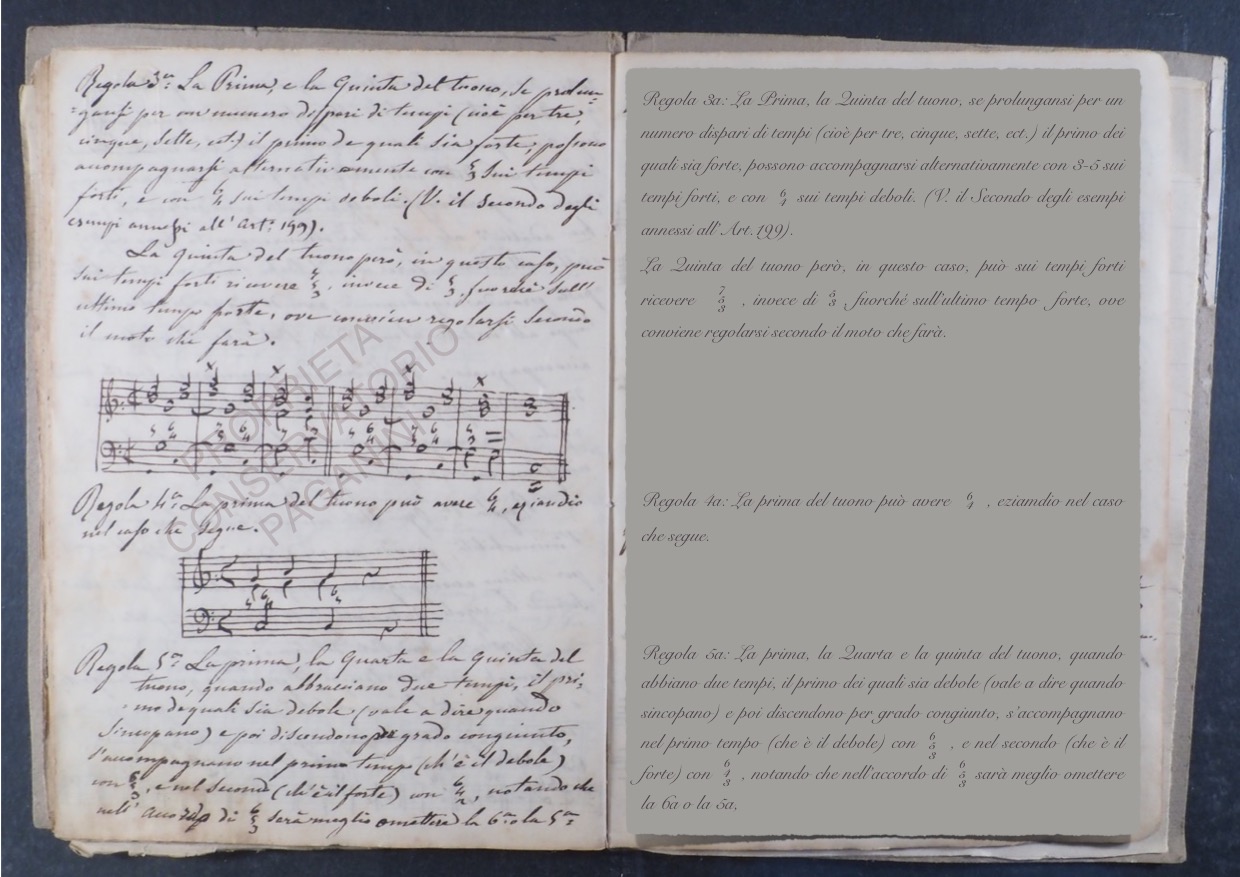 Regola 3a: La Prima, e la Quinta del tuono, se prolun=
=gansi per un numero dispari di tempi (cioè per tre,
cinque, sette, ect.) il primo de quali sia forte, possono
accompagnarsi alternativamente con 5 3 sui tempi
forti, e con 6 4 sui tempi deboli. (V. il Secondo degli
esempi annessi all' Art. 199).
La Quinta del tuono però, in questo caso, può
sui tempi forti ricevere 7 5 3, invece di 5 3, fuorché sull'
ultimo tempo forte, ove convien regolarsi secondo
il moto che farà.
PROPRIETA
CONSERVATORIO
PAGANINI
Regola 4a: La prima del tuono può avere 6 4, eziandio
nel caso che segue.
Regola 5a: La prima, la Quarta e la Quinta del
tuono, quando abbracciano due tempi, il pri=
mo de quali sia debole (vale a dire quando
sincopano) e poi discendono per grado congiunto,
s'accompagnano nel primo tempo (ch'è il debole)
con 6 5 3, e nel secondo (ch'è il forte) con 6 4 2, notando che
nell' accordo di 6 5 3 serà meglio omettere la 6a o la 5a
Regola 3a: La Prima, la Quinta del tuono, se prolungansi per un
numero dispari di tempi (cioè per tre, cinque, sette, ect.) il primo dei
quali sia forte, possono accompagnarsi alternativamente con 3-5 sui
tempi forti, e con 6 4 sui tempi deboli. (V. il Secondo degli esempi
annessi all' Art. 199).
La Quinta del tuono però, in questo caso, può sui tempi forti
ricevere 7 5 3 , invece di 5 3 , fuorché sull'ultimo tempo forte, ove
conviene regolarsi secondo il moto che farà.
Regola 4a: La prima del tuono può avere 6 4 , eziamdio nel caso
che segue.
Regola 5a: La prima, la Quarta e la quinta del tuono, quando
abbiano due tempi, il primo dei quali sia debole (vale a dire quando
sincopano) e poi discendono per grado congiunto, s'accompagnano
nel primo tempo (che è il debole) con 6 5 3 , e nel secondo (che è il
forte) con 6 4 3 , notando che nell'accordo di 6 5 3 sarà meglio omettere
la 6a o la 5a,